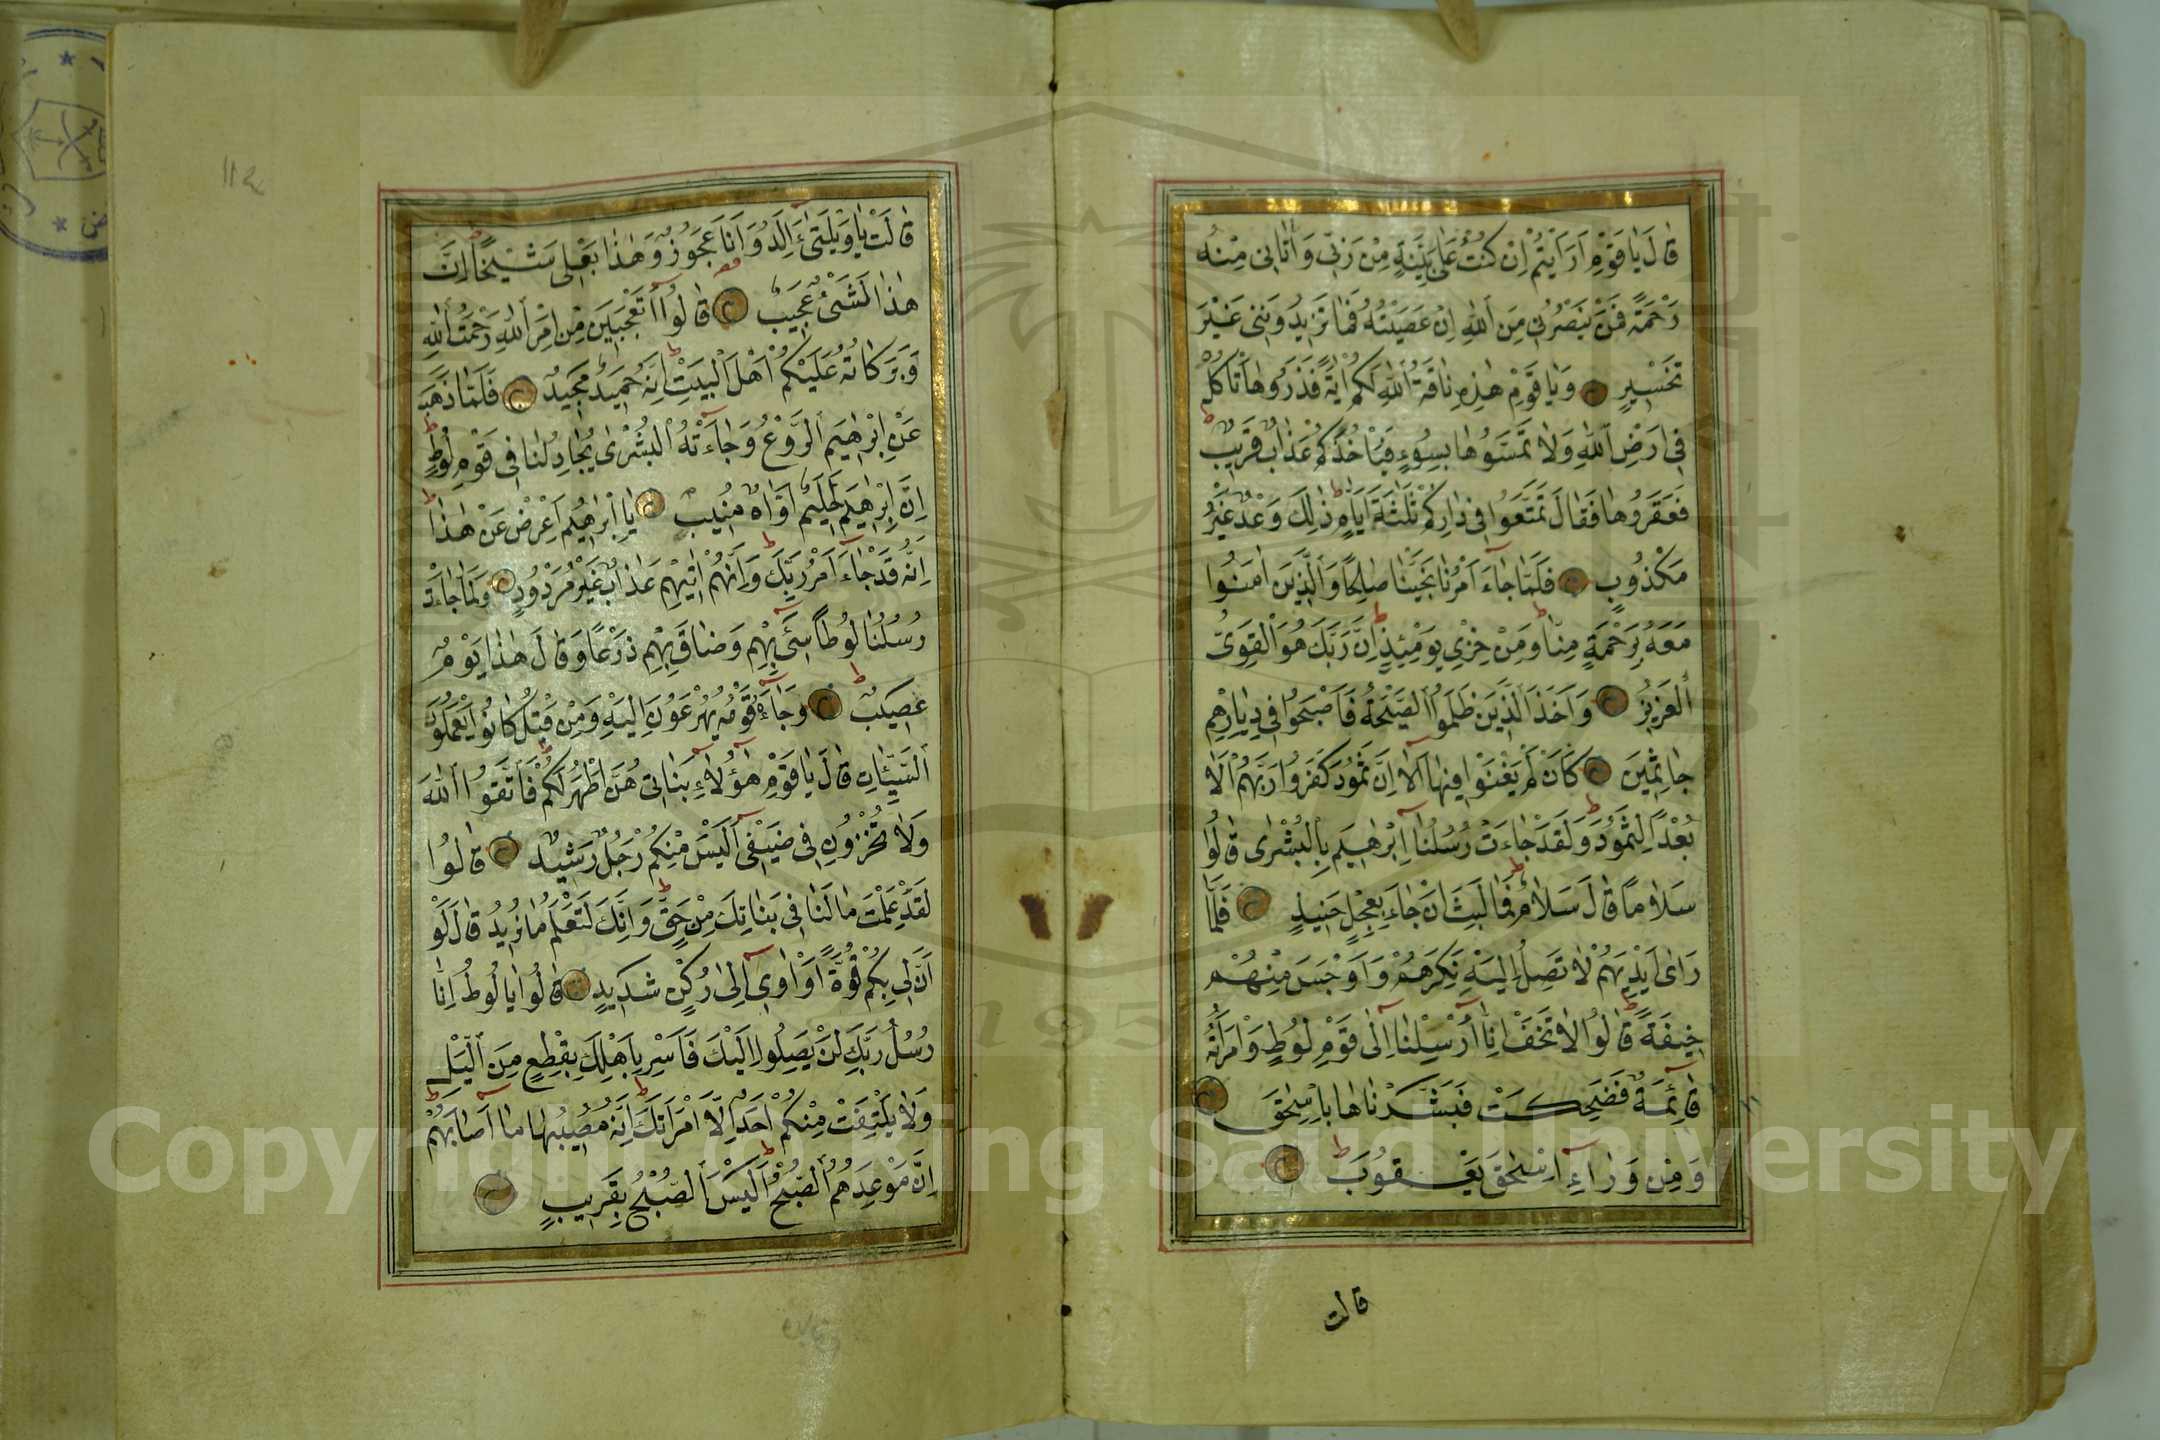 قَالَ يَا قَوْمِ اَرَاَيْتُمْ اِنْ كُنْتُ عَلٰى بَيِّنَةٍ مِنْ رَبّى وَاٰتَانى مِنْهُ
رَحْمَةً فَمَنْ يَنْصُرُنى مِنَ ٱللّٰهِ اِنْ عَصَيْتُهُ فَمَا تَزيدُونَنى غَيْرَ
تَخْسيرٍ وَيَا قَوْمِ هٰذِهِ نَاقَةُ ٱللّٰهِ لَكُمْ اٰيَةً فَذَرُوهَا تَاْكُلْ
فى اَرْضِ ٱللّٰهِ وَلَا تَمَسُّوهَا بِسُوءٍ فَيَاْخُذَكُمْ عَذَابٌ قَريبٌ
فَعَقَرُوهَا فَقَالَ تَمَتَّعُوا فى دَارِكُمْ ثَلٰثَةَ اَيَّامٍ ذٰلِكَ وَعْدٌ غَيْرُ
مَكْذُوبٍ فَلَمَّا جَاءَ اَمْرُنَا نَجَّيْنَا صَالِحًا وَالَّذينَ اٰمَنُوا
مَعَهُ بِرَحْمَةٍ مِنَّا وَمِنْ خِزْىِ يَوْمِئِذٍ اِنَّ رَبَّكَ هُوَ ٱلْقَوِىُّ
ٱلْعَزيزُ وَاَخَذَ ٱلَّذينَ ظَلَمُوا ٱلصَّيْحَةُ فَاَصْبَحُوا فى دِيَارِهِمْ
جَاثِمينَ كَاَنْ لَمْ يَغْنَوْا فيهَا اَلَا اِنَّ ثَمُودَ كَفَرُوا رَبَّهُمْ اَلَا
بُعْدًا لِثَمُودَ وَلَقَدْ جَاءَتْ رُسُلُنَا اِبْرٰهيمَ بِالْبُشْرٰى قَالُوا
سَلَامًا قَالَ سَلَامٌ فَمَا لَبِثَ اَنْ جَاءَ بِعِجْلٍ حَنيذٍ فَلَمَّا
رَاٰى اَيْدِيَهُمْ لَا تَصِلُ اِلَيْهِ نَكِرَهُمْ وَاَوْجَسَ مِنْهُمْ
خيفَةً قَالُوا لَا تَخَفْ اِنَّا اُرْسِلْنَا اِلٰى قَوْمِ لُوطٍ وَامْرَاَتُهُ
قَائِمَةٌ فَضَحِكَتْ فَبَشَّرْنَاهَا بِاِسْحٰقَ
وَمِنْ وَرَاءِ اِسْحٰقَ يَعْقُوبَ
قالت
١١٤
قَالَتْ يَا وَيْلَتٰى ءَاَلِدُ وَاَنَا عَجُوزٌ وَهٰذَا بَعْلى شَيْخًا اِنَّ
هٰذَا لَشَىْءٌ عَجيبٌ قَالُوا اَتَعْجَبينَ مِنْ اَمْرِ ٱللّٰهِ رَحْمَتُ ٱللّٰهِ
وَبَرَكَاتُهُ عَلَيْكُمْ اَهْلَ ٱلْبَيْتِ اِنَّهُ حَميدٌ مَجيدٌ فَلَمَّا ذَهَبَ
عَنْ اِبْرٰهيمَ ٱلرَّوْعُ وَجَاءَتْهُ ٱلْبُشْرٰى يُجَادِلُنَا فى قَوْمِ لُوطٍ
اِنَّ اِبْرٰهيمَ لَحَليمٌ اَوَّاهٌ مُنيبٌ يَا اِبْرٰهيمُ اَعْرِضْ عَنْ هٰذَا
اِنَّهُ قَدْ جَاءَ اَمْرُ رَبِّكَ وَاِنَّهُمْ اٰتيهِمْ عَذَابٌ غَيْرُ مَرْدُودٍ وَلَمَّا جَاءَتْ
رُسُلُنَا لُوطًا سىءَ بِهِمْ وَضَاقَ بِهِمْ ذَرْعًا وَقَالَ هٰذَا يَوْمٌ
عَصيبٌ وَجَاءَهُ قَوْمُهُ يُهْرَعُونَ اِلَيْهِ وَمِنْ قَبْلُ كَانُوا يَعْمَلُونَ
ٱلسَّيِّئَاتِ قَالَ يَا قَوْمِ هٰؤُلَاءِ بَنَاتى هُنَّ اَطْهَرُ لَكُمْ فَاتَّقُوا ٱللّٰهَ
وَلَا تُخْزُونِ فى ضَيْفى اَلَيْسَ مِنْكُمْ رَجُلٌ رَشيدٌ قَالُوا
لَقَدْ عَلِمْتَ مَا لَنَا فى بَنَاتِكَ مِنْ حَقٍّ وَاِنَّكَ لَتَعْلَمُ مَا نُريدُ قَالَ لَوْ
اَنَّ لى بِكُمْ قُوَّةً اَوْ اٰوى اِلٰى رُكْنٍ شَديدٍ قَالُوا يَا لُوطُ اِنَّا
رُسُلُ رَبِّكَ لَنْ يَصِلُوا اِلَيْكَ فَاَسْرِ بِاَهْلِكَ بِقِطْعٍ مِنَ ٱلَّيْلِ
وَلَا يَلْتَفِتْ مِنْكُمْ اَحَدٌ اِلَّا امْرَاَتَكَ اِنَّهُ مُصيبُهَا مَا اَصَابَهُمْ
اِنَّ مَوْعِدَهُمُ ٱلصُّبْحُ اَلَيْسَ ٱلصُّبْحُ بِقَريبٍ
Copyright © King Saud University